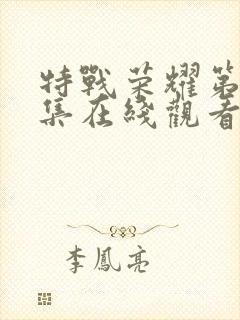 特戰荣耀第
集在綫觀看
李鳳亮